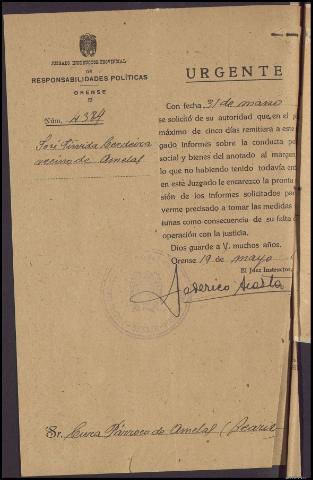 JUZGADO INSTRUCTOR PROVINCIAL
DE
RESPONSABILIDADES POLÍTICAS
ORENSE
Núm. 4384
José
vecino de
URGENTE
Con fecha 31 de marzo
se solicitó de su autoridad que, en el p
máximo de cinco días remitiera a este
gado informes sobre la conducta po
social y bienes del anotado al margen
lo que no habiendo tenido todavía en
en este Juzgado le encarezco la pronta
sión de los informes solicitados pa
verme precisado a tomar las medidas
tunas como consecuencia de su falta
operación con la justicia.
Dios guarde a V. muchos años.
Orense 19 de mayo
El Juez Instructor,
Federico Acosta
Sr. Cura Párroco de